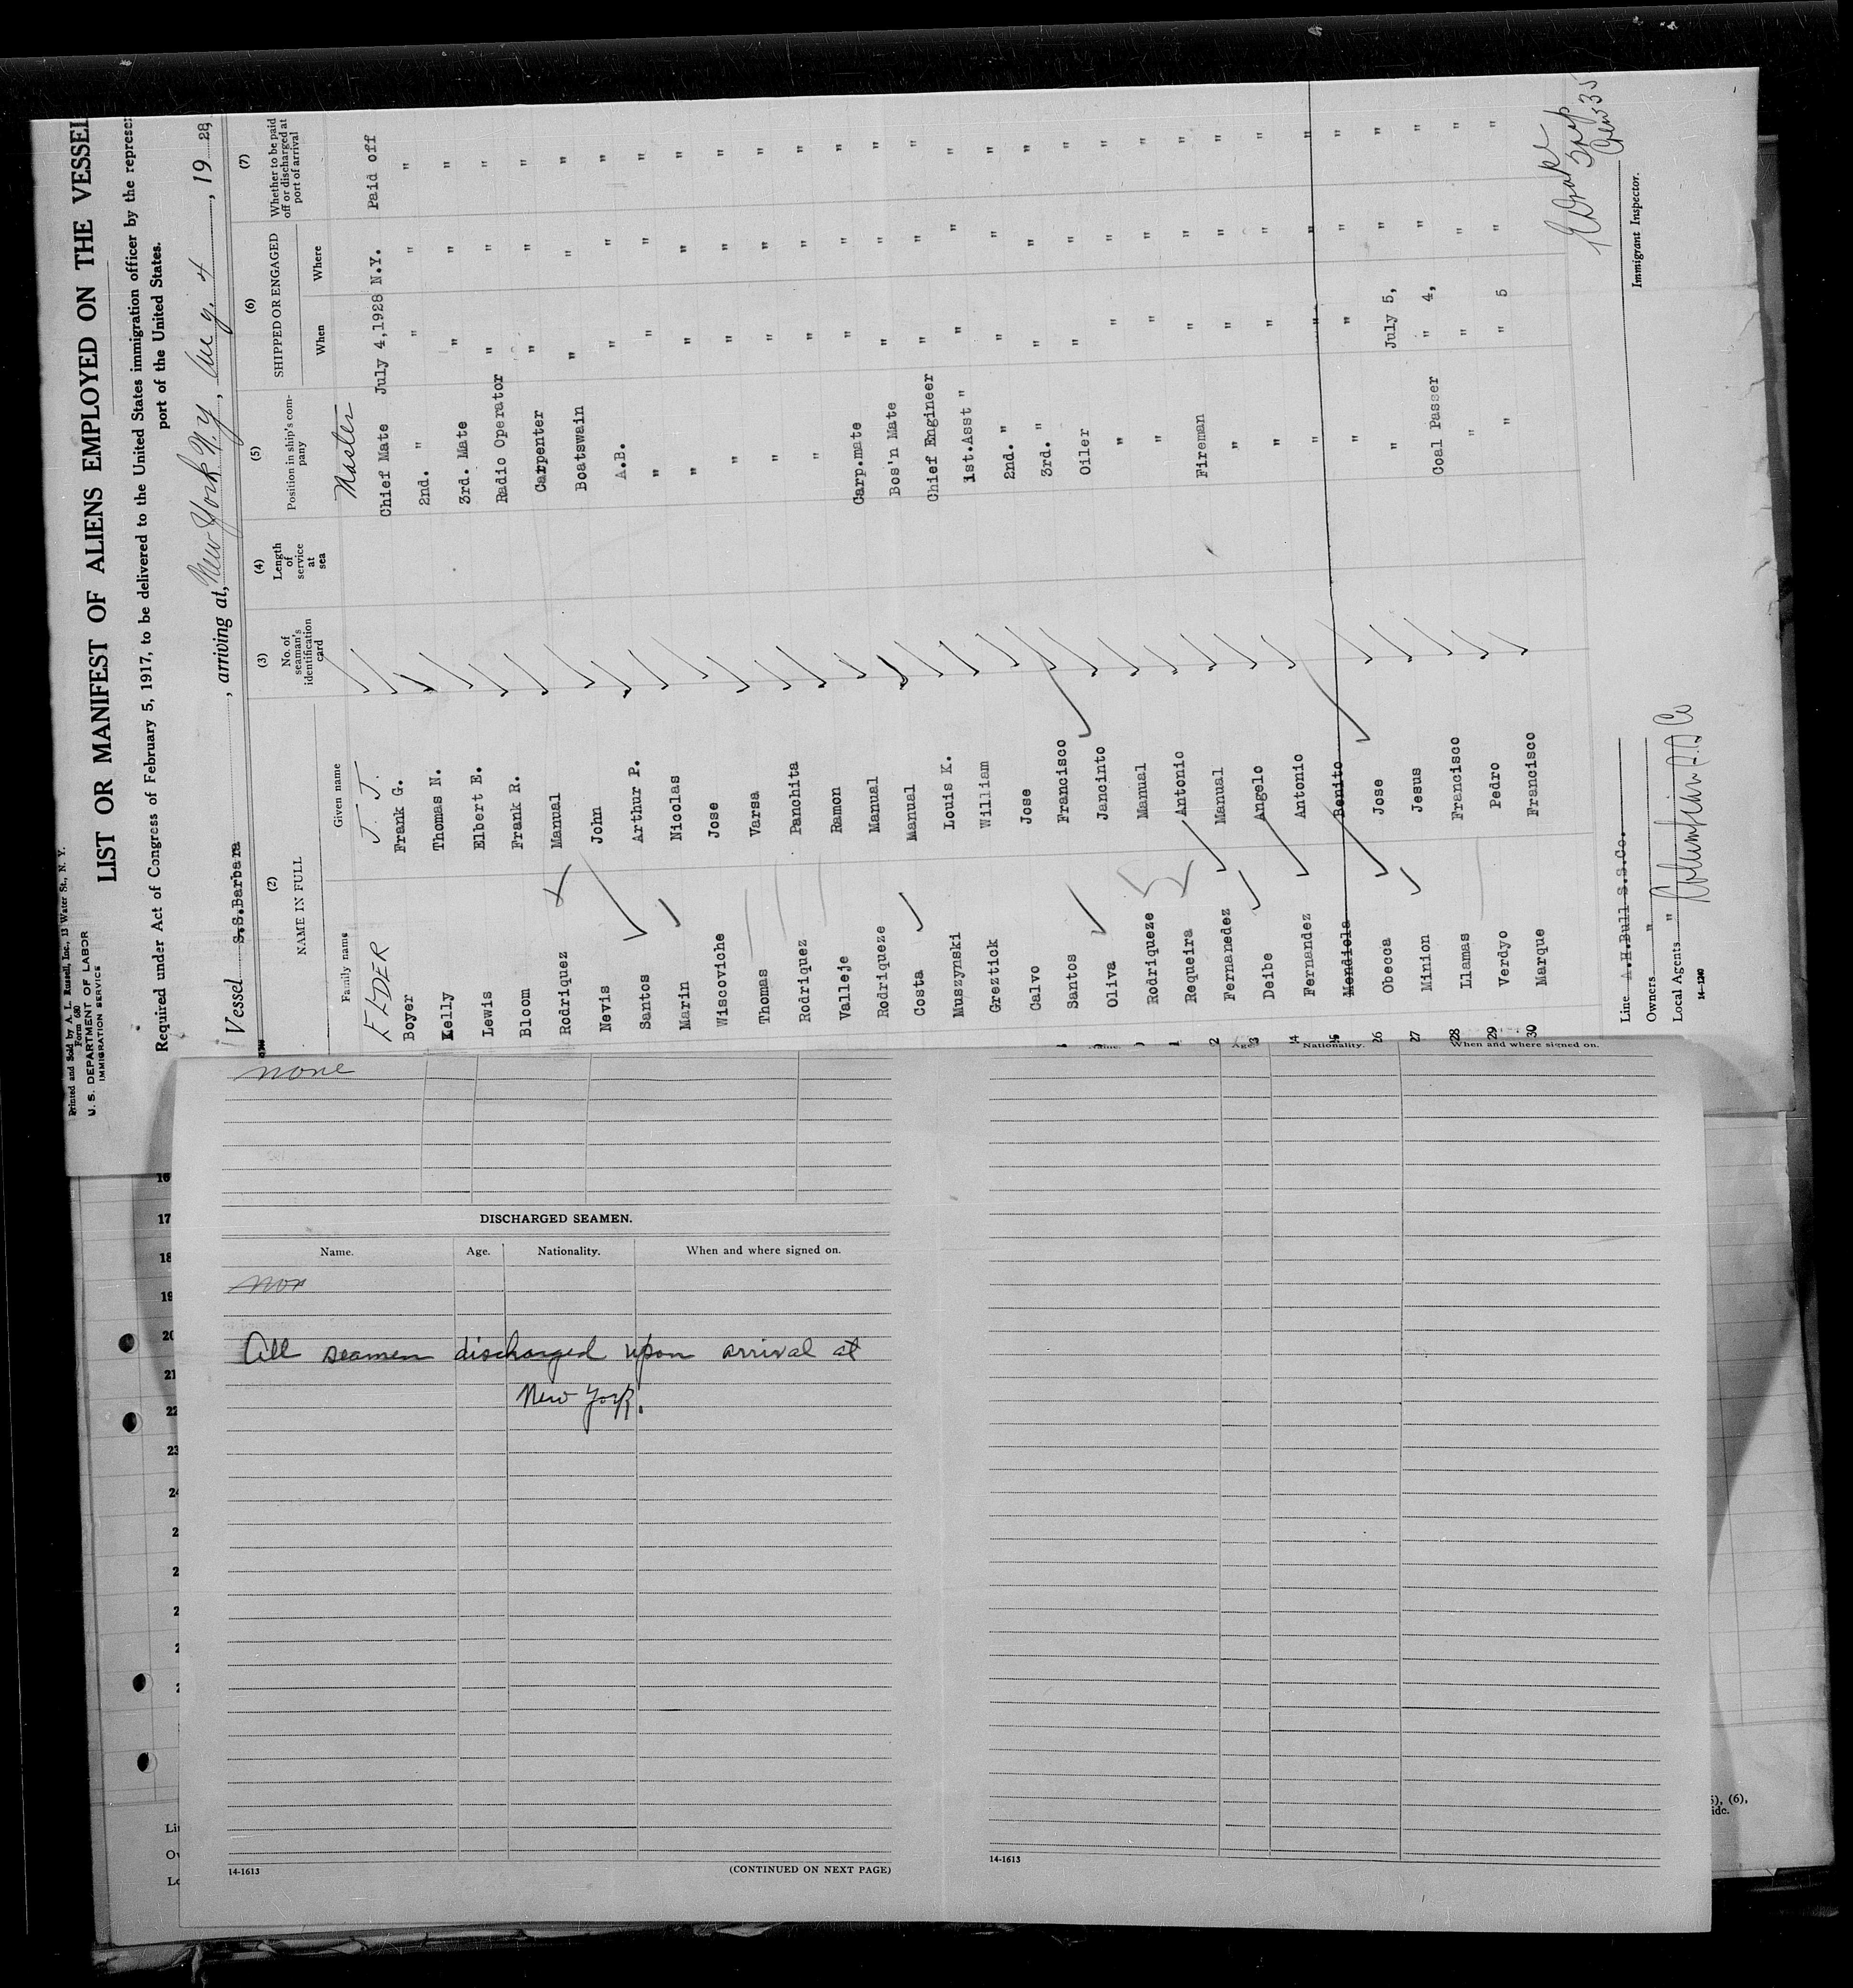 Printed and Sold by A. L. Russell, Inc., 13 Water St., N. Y.
Form 680
U. S. DEPARTMENT OF LABOR
IMMIGRATION SERVICE
LIST OR MANIFEST OF ALIENS EMPLOYED ON THE VESSEL
Required under Act of Congress of February 5, 1917, to be delivered to the United States immigration officer by the represen
port of the United States.
Vessel S.S.Barbara, arriving at, New York N.Y., Aug. 4, 19 28,
(2) (3) (4) (5) (6) (7)
NAME IN FULL No. of seaman's identification card Length of service at sea Position in ship's company SHIPPED OR ENGAGED Whether to be paid off or discharged at port of arrival
Family name Given name When Where
ELDER J. J. Master
Boyer Frank G. Chief Mate July 4,1928 N.Y. Paid off
Kelly Thomas N. 2nd. " " " "
Lewis Elbert E. 3rd. Mate " " "
Bloom Frank R. Radio Operator " " "
Rodriquez Manual Carpenter " " "
Nevis John Boatswain " " "
Santos Arthur P. A.B. " " "
Marin Nicolas " " " "
Wiscoviche Jose " " " "
Thomas Varsa " " " "
Rodriquez Panchita " " " "
Valleje Ramon " " " "
Rodriqueze Manual Carp.mate " " "
Costa Manual Bos'n Mate " " "
Muszynski Louis K. Chief Engineer " " "
Greztick William 1st.Asst " " " "
Calvo Jose 2nd. " " " "
Santos Francisco 3rd. " " " "
Oliva Jancinto Oiler " " "
Rodriqueze Manual " " " "
Requeira Antonio " " " "
Fernanedez Manual Fireman " " "
Deibe Angelo " " " "
24 Fernandez Antonio " " " "
25 Mendiola Benito " " " "
26 Obecca Jose " " " "
27 Minion Jesus " July 5, " "
28 Llamas Francisco Coal Passer " 4, " "
29 Verdyo Pedro " " " "
30 Marque Francisco " " 5 " "
Line A.H.Bull S.S.Co.
Owners "
Local Agents " Columbian S.S. Co
14-1240
Immigrant Inspector.
none
DISCHARGED SEAMEN.
Name. Age. Nationality. When and where signed on.
All seamen discharged upon arrival at
New York.
14-1613
(CONTINUED ON NEXT PAGE)
Age. Nationality. When and where signed on.
14-1613
16
17
18
19
20
21
22
23